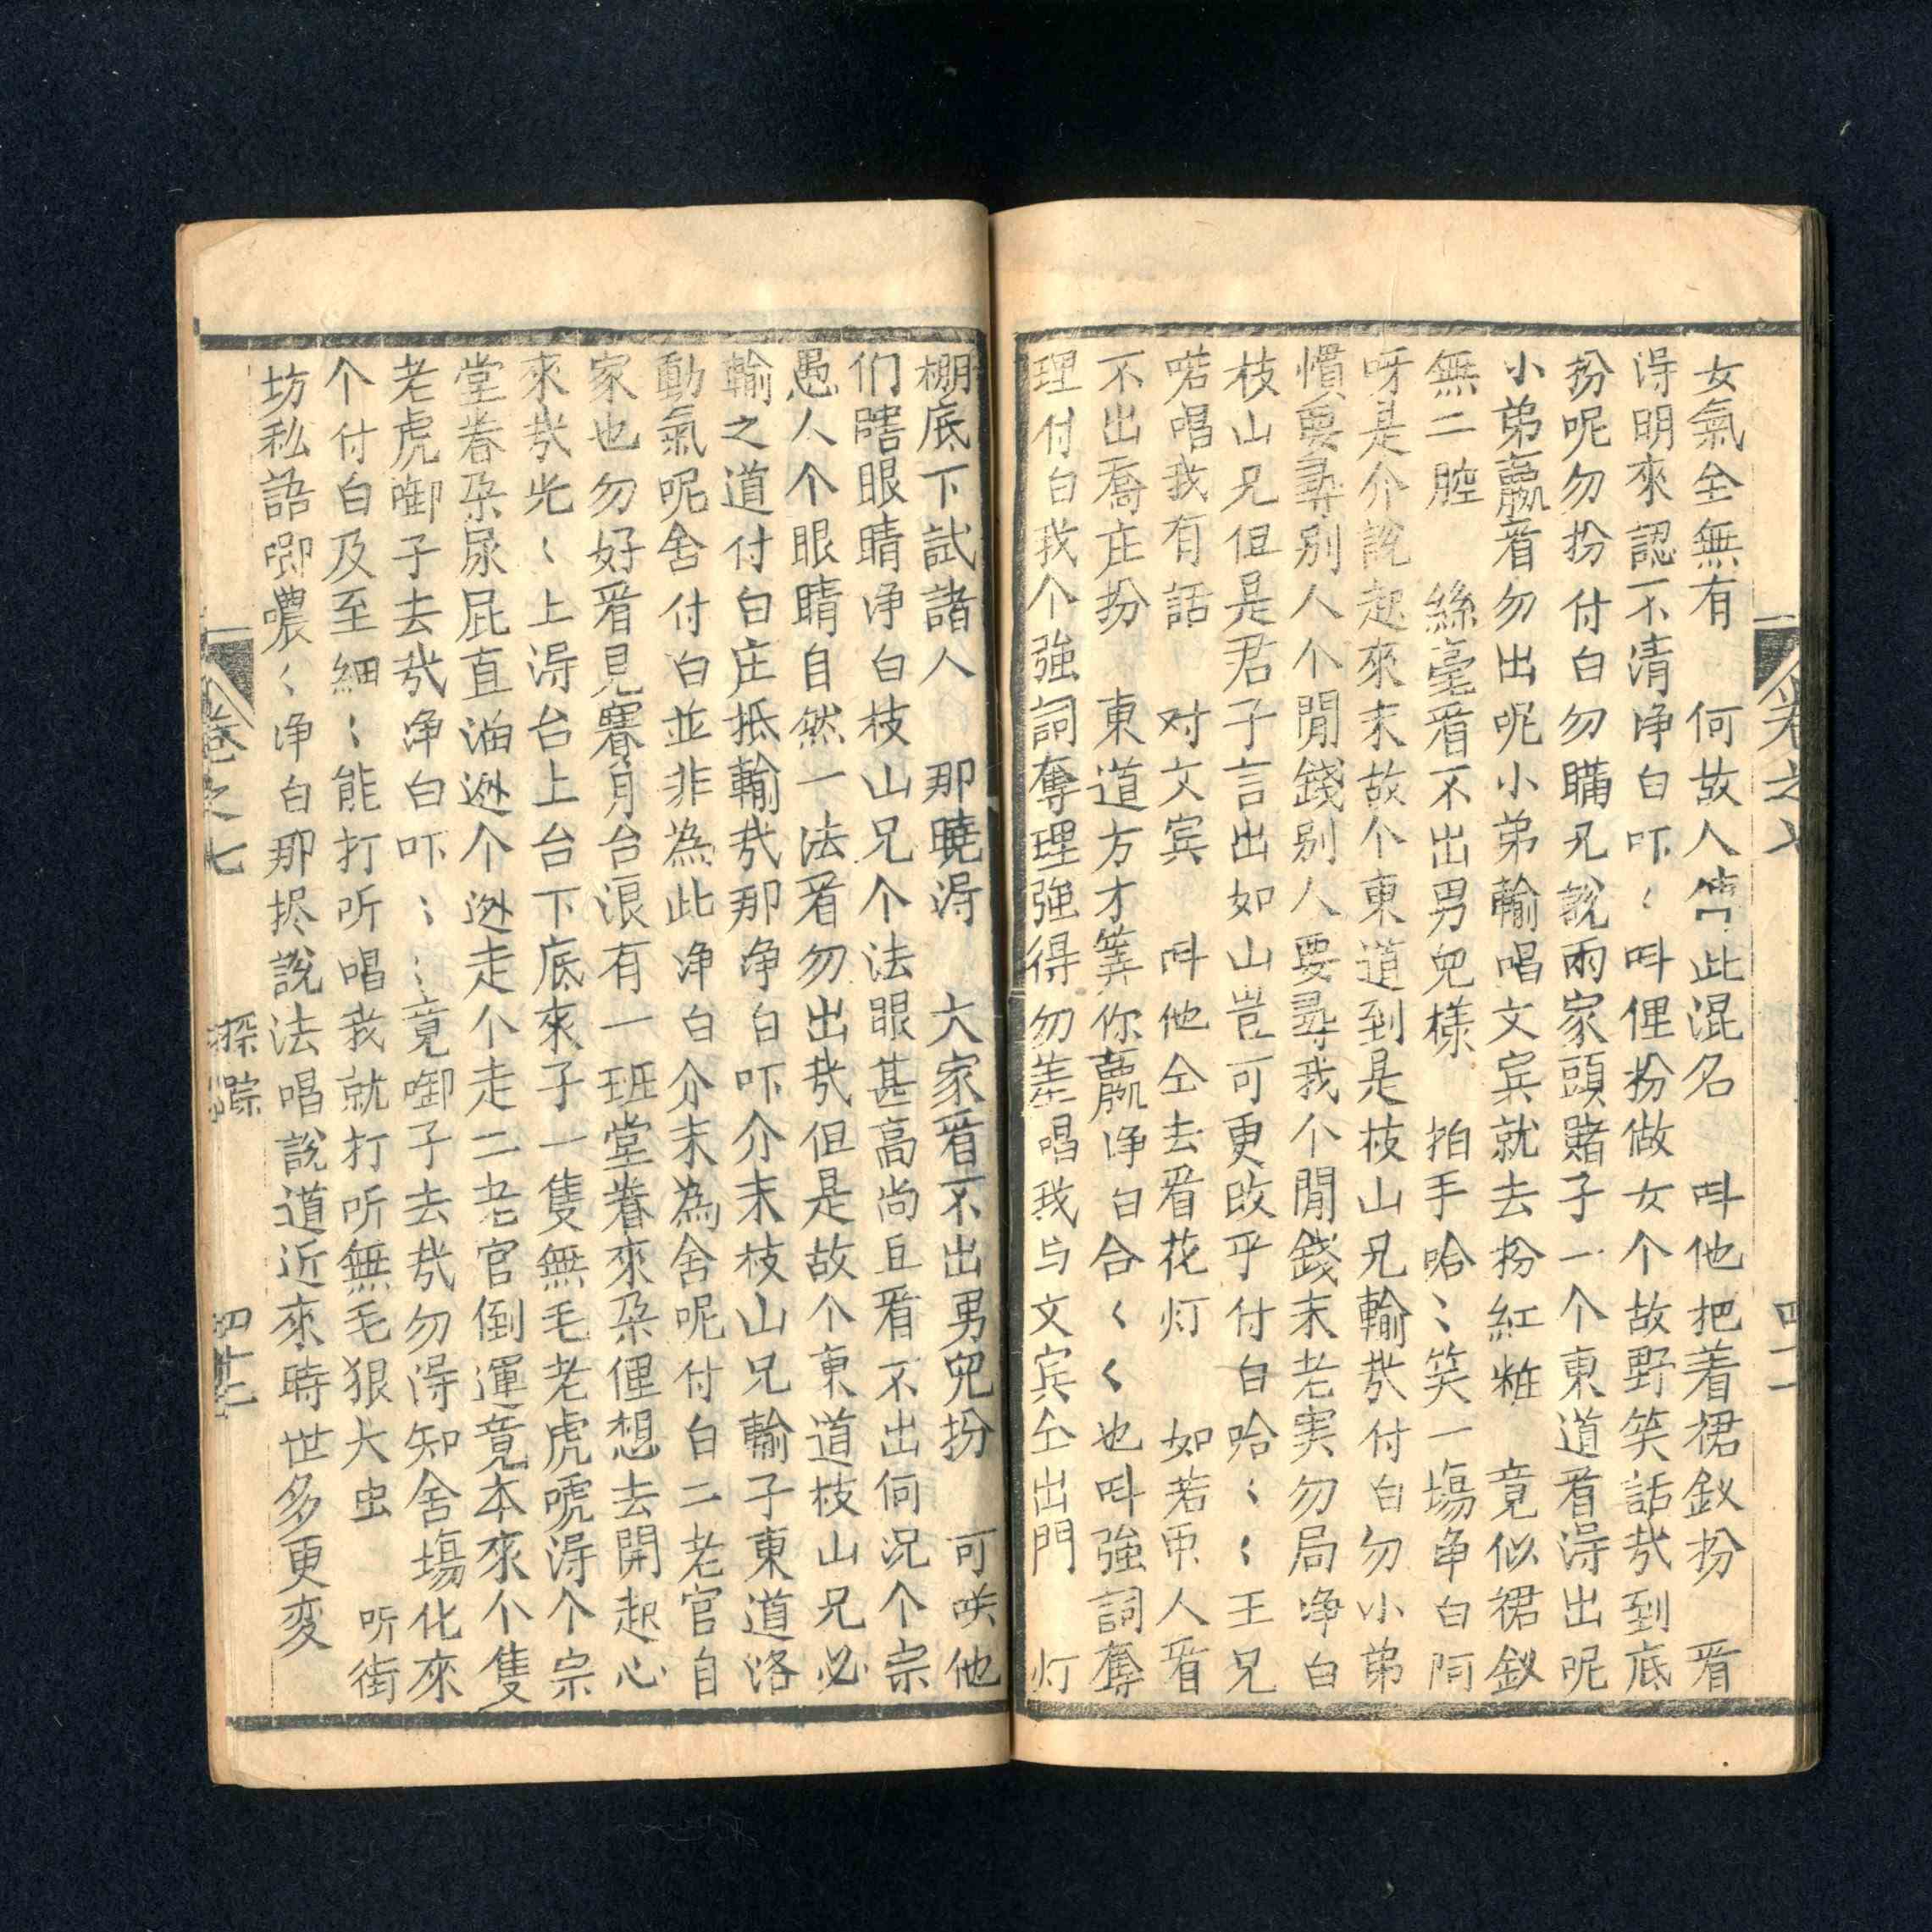 女氣全無有　何故人傳此混名　呌他把着裙釵扮　㸔
淂明來認不清净白吓〻呌俚扮做女个故野笑話㢤到底
扮呢勿扮付白勿瞞兄說兩家頭賭子一个東道㸔淂出呢
小弟贏㸔勿出呢小弟輸唱文宾就去扮紅粧　竟似裙釵
無二腔　絲毫㸔不出男兒樣　拍手哈〻笑一塲净白阿
呀是介說起來末故个東道到是枝山兄輸㢤付白勿小弟
慣要尋别人个閒錢别人要尋我个閒錢末老実勿局净白
枝山兄但是君子言出如山豈可更改乎付白哈〻〻王兄
喏唱我有話　对文宾　呌他仝去㸔花灯　如若甲人㸔
不出喬庄扮　東道方才筭你贏净白合〻〻也呌強詞奪
理付白我个強詞奪理強得勿差唱我与文宾仝出門　灯
棚底下試諸人　那曉淂　大家㸔不出男兒扮　可咲他
们瞎眼睛净白枝山兄个法眼甚高尚且㸔不出何况个宗
愚人个眼睛自然一法㸔勿出㢤但是故个東道枝山兄必
輸之道付白庄抵輸㢤那净白吓介末枝山兄輸子東道洛
動氣呢舍付白並非為此净白介末為舍呢付白二老官自
家也勿好㸔見賽月台浪有一班堂眷來朶俚想去開起心
來㢤光〻上淂台上台下底來子一隻無毛老虎唬淂个宗
堂眷朶尿屁直淌逃个逃走个走二老官倒運竟本來个隻
老虎啣子去㢤净白吓〻〻竟啣子去㢤勿淂知舍塲化來
个付白及至細〻能打听唱我就打听無毛狠大虫　听街
坊私語唧噥〻净白那捴說法唱說道近來時世多更変
卷之七
探踪